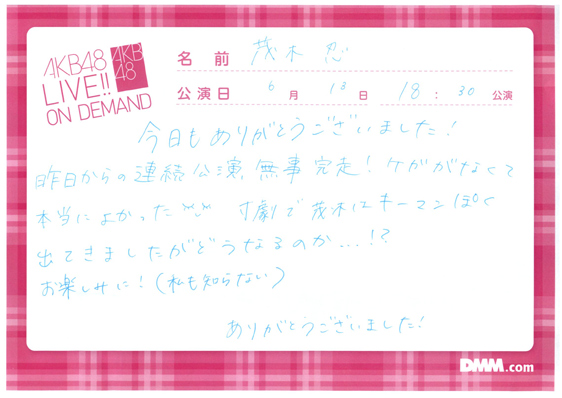 AKB48
LIVE!!
ON DEMAND
AKB
48
名前 茂木 忍
公演日 6月 13日 18:30 公演
今日もありがとうございました!
昨日からの連続公演、無事完走!ケガがなくて
本当によかった
寸劇で茂木はキーマンぽく
出てきましたがどうなるのか...!?
お楽しみに!(私も知らない)
ありがとうございました!
DMM.com